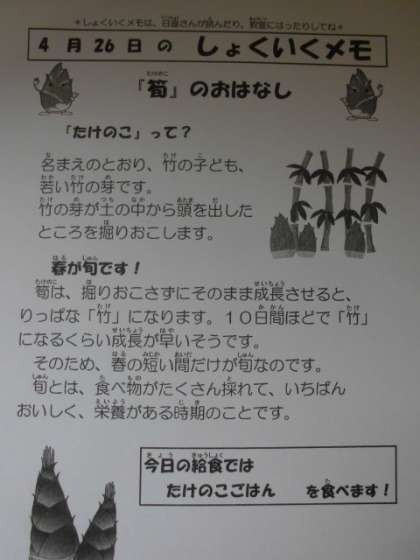 ＊しょくいくメモは、日直さんが読んだり、教室にはったりしてね＊
4月26日の しょくいくメモ
『筍』のおはなし
「たけのこ」って？
名まえのとおり、竹の子ども、
若い竹の芽です。
竹の芽が土の中から頭を出した
ところを掘りおこします。
春が旬です！
筍は、掘りおこさずにそのまま成長させると、
りっぱな「竹」になります。１０日間ほどで「竹」
になるくらい成長が早いそうです。
そのため、春の短い間だけが旬なのです。
旬とは、食べ物がたくさん採れて、いちばん
おいしく、栄養がある時期のことです。
今日の給食では
たけのこごはん を食べます！